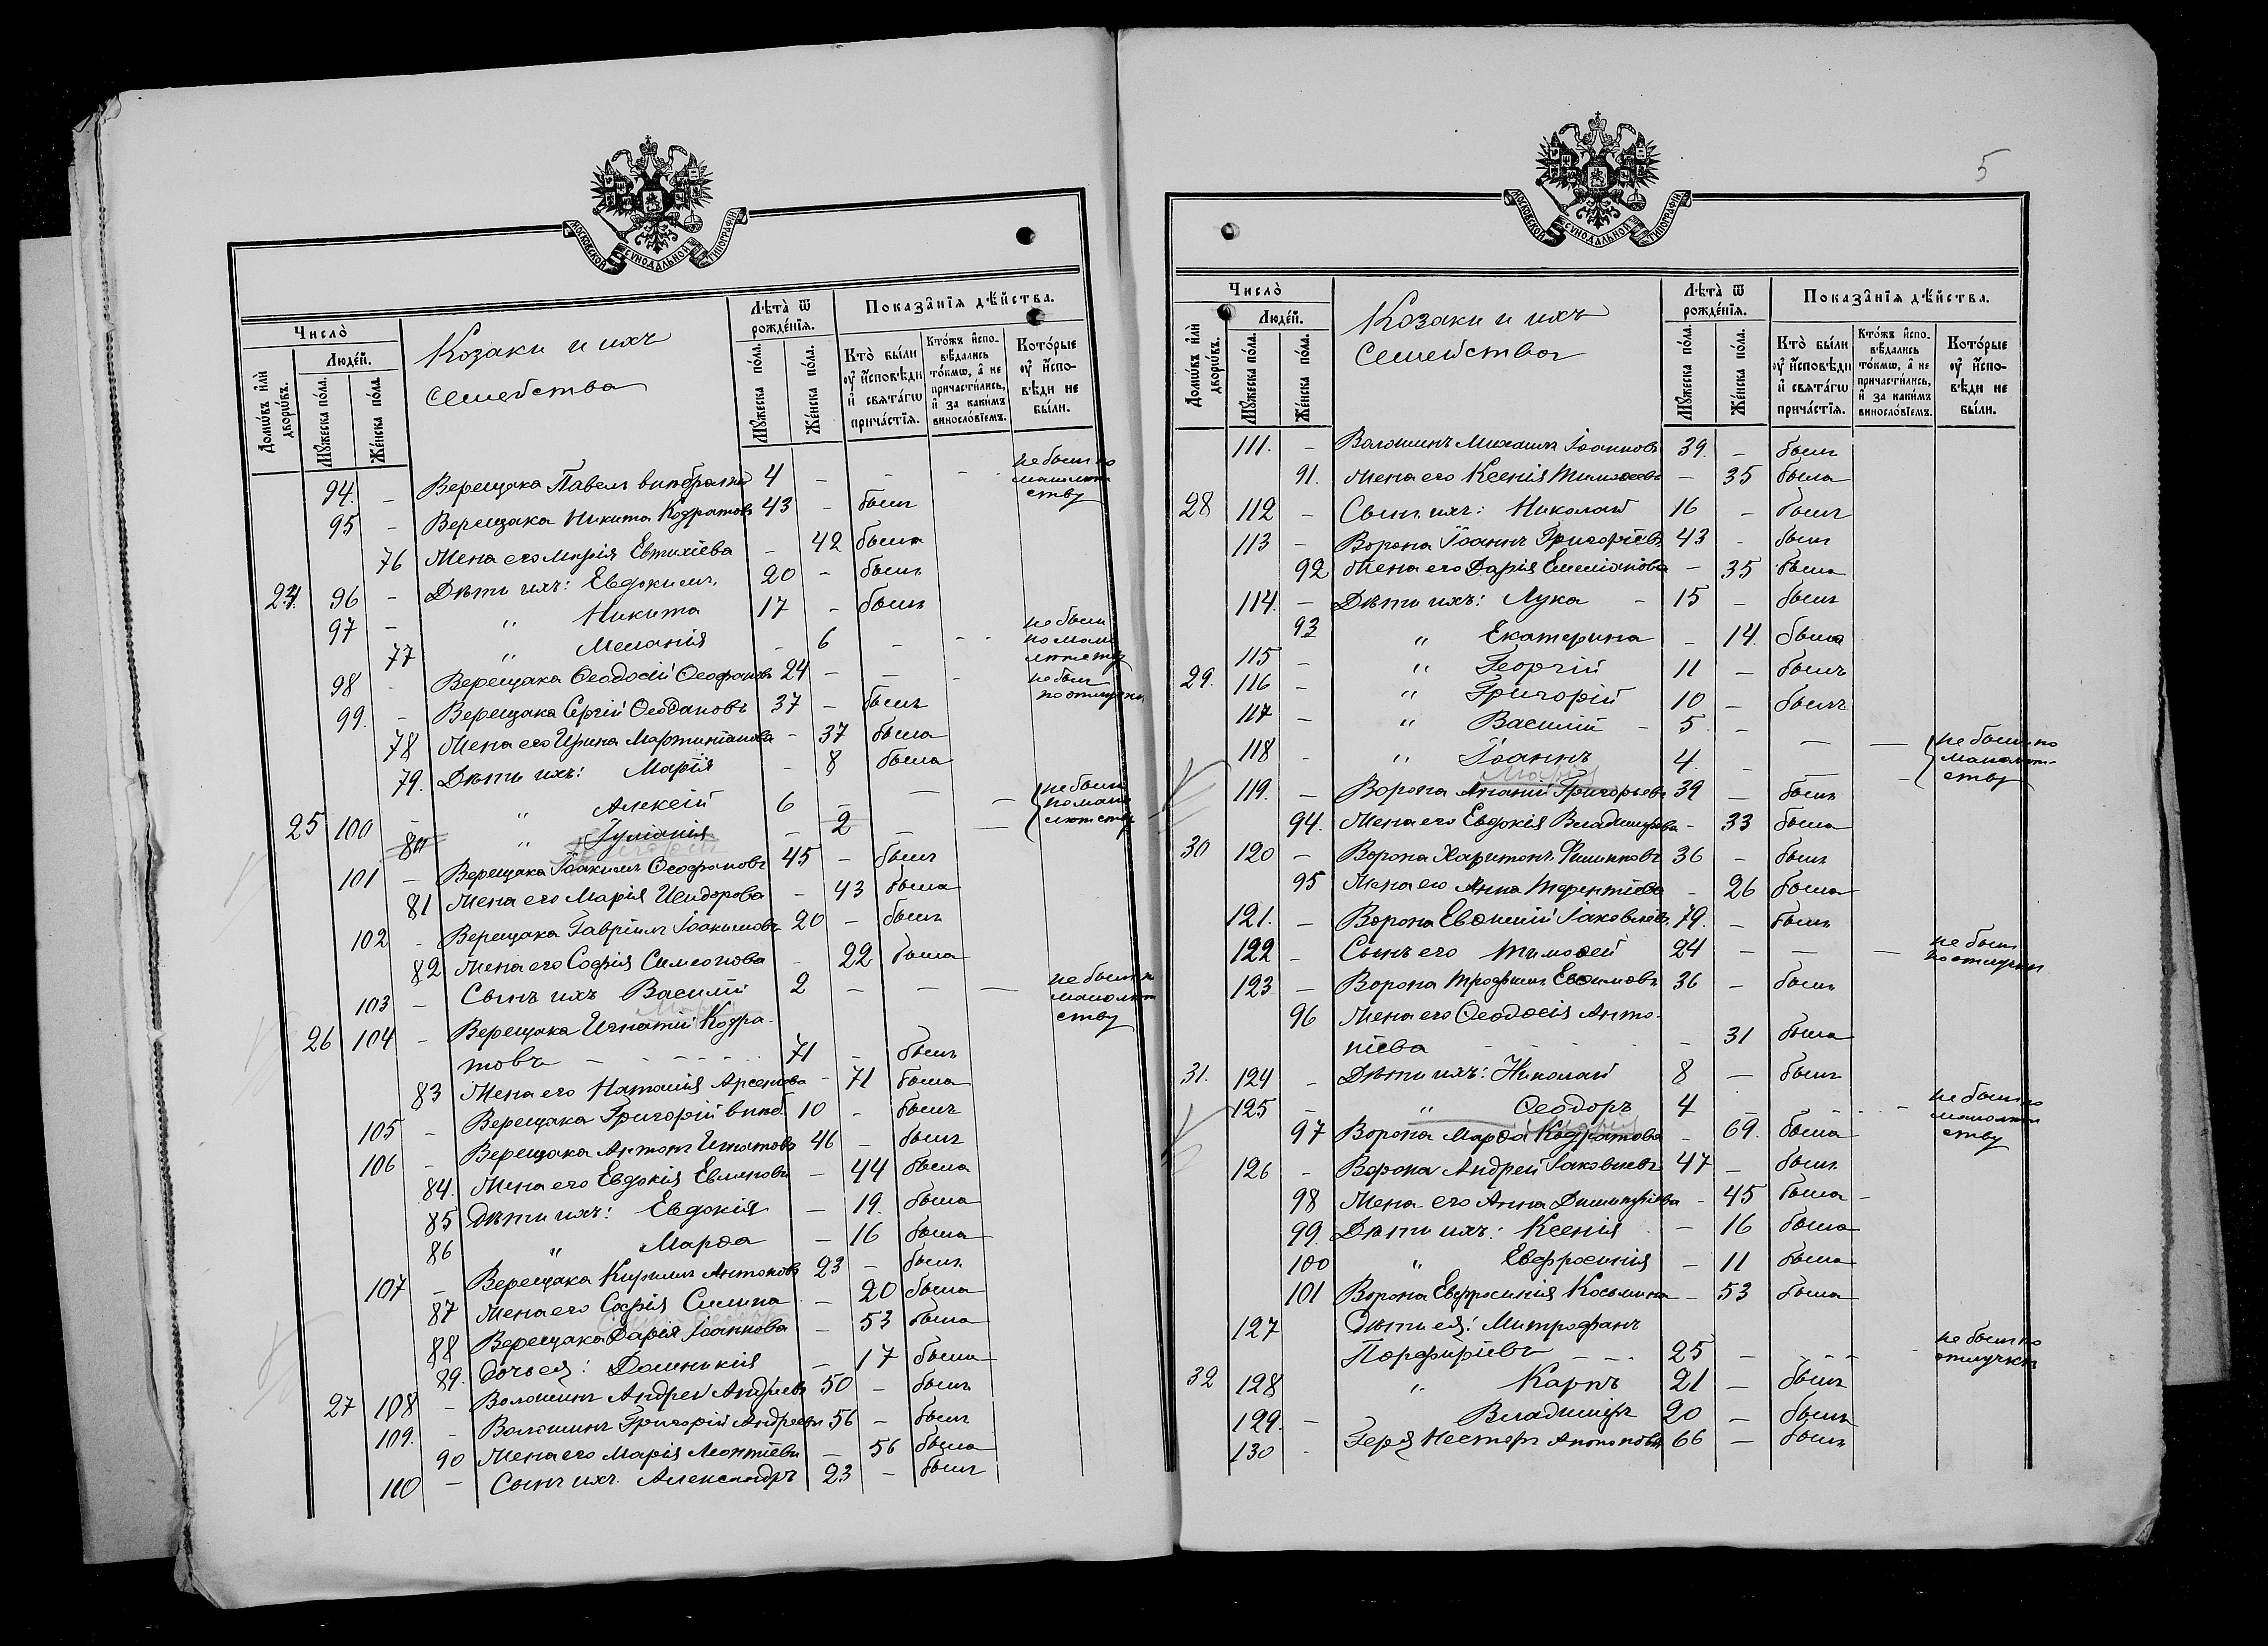 МОСКОВСКОЙ СѴНОДАЛЬНОЙ ТИПОГРАФІИ
Число̀
Домѡ́въ и҆лѝ дворѡ́въ.
Люде́й.
Мꙋ́жеска по́ла.
Же́нска по́ла.
Козаки и ихъ
семейства
Лѣ́та ѿ рожде́нїѧ.
Мꙋ́жеска по́ла.
Же́нска по́ла.
Показа̑нїѧ дѣ́йства.
Кто̀ бы́ли ᲂу҆ и҆сповѣ́ди и҆ свѧта́гѡ прича́стїѧ.
Кто́жъ и҆сповѣ́дались то́кмѡ, а҆ не причасти́лись, и҆ за каки́мъ винослóвїемъ.
Кото́рые ᲂу҆ и҆сповѣ́ди не бы́ли.
94. - Верещака Павелъ 4 - - - не былъ по малолѣтству
95 - Верещака Никита Кодратовъ 43 - былъ
76 Жена его Марія Евтихіева - 42 была
24. 96 - Дѣти ихъ: Евдокимъ 20 - былъ
97 - " Никита 17 - былъ
77 " Меланія - 6 - - не была по малолѣтству
98 - Верещака Ѳеодосій Ѳеофановъ 24 - - - не былъ по отлучки
99. - Верещака Сергій Ѳеофановъ 37 - былъ
78 Жена его Ирина Мартиніанова - 37 была
79. Дѣти ихъ: Марія - 8 была
25 100 - " Алексій 6 - - - не были по малолѣтству
80 " Іуліанія - 2 - -
101 - Верещака Іоакимъ Ѳеофановъ 45 - былъ
81 Жена его Марія Исидорова - 43 была
102 - Верещака Гавріилъ Іоакимовъ 20 - былъ
82 Жена его Софія Симеонова - 22 была
103 - Сынъ ихъ Василій 2 - - - не былъ по малолѣтству
26 104 - Верещака Игнатій Кодра-
товъ - 71 - былъ
83 Жена его Наталія Арсенова - 71 была
105 - Верещака Григорій внеб. 10 - былъ
106 - Верещака Антонъ Игнатовъ 46 - былъ
84. Жена его Евдокія - 44 была
85 Дѣти ихъ: Евдокія - 19. была
86 " Марѳа - 16 была
107 - Верещака Кириллъ Антоновъ 23 - былъ
87 Жена его Софія Силина - 20 была
88 Верещака Дарія Іоаннова - 53 была
89. Дочь ея: Домникія - 17 была
27 108 - Волошинъ Андрей Андреевъ 50 - былъ
109. - Волошинъ Григорій Андреевъ 56 - былъ
90 Жена его Марія Леонтіева - 56 была
110 - Сынъ ихъ Александръ 23 - былъ
5
МОСКОВСКОЙ СѴНОДАЛЬНОЙ ТИПОГРАФІИ
Число̀
Домѡ́въ и҆лѝ дворѡ́въ.
Люде́й.
Мꙋ́жеска по́ла.
Же́нска по́ла.
Козаки и ихъ
семейства
Лѣ́та ѿ рожде́нїѧ.
Мꙋ́жеска по́ла.
Же́нска по́ла.
Показа̑нїѧ дѣ́йства.
Кто̀ бы́ли ᲂу҆ и҆сповѣ́ди и҆ свѧта́гѡ прича́стїѧ.
Кто́жъ и҆сповѣ́дались то́кмѡ, а҆ не причасти́лись, и҆ за каки́мъ винослóвїемъ.
Кото́рые ᲂу҆ и҆сповѣ́ди не бы́ли.
111. - Волошинъ Михаилъ Іоанновъ 39. - былъ
91. Жена его Ксенія Тимоѳеева - 35 была
28 112 - Сынъ ихъ: Николай 16 - былъ
113 - Ворона Іоаннъ Григоріевъ 43 - былъ
92 Жена его Дарія Емеліанова - 35 была
114. - Дѣти ихъ: Лука - 15 - былъ
93 " Екатерина - 14. была
115 - " Георгій 11 - былъ
29. 116 - " Григорій 10 - былъ
117 - " Василій - 5 - - - не были по малолѣтству
118 - " Іоаннъ 4. - - -
119. - Ворона Ананій Григорьевъ 39 - былъ
94. Жена его Евдокія Владимірова - 33 была
30 120 - Ворона Харитонъ Филипповъ 36 - былъ
95 Жена его Анна Терентіева - 26 была
121. - Ворона Евѳимій Іаковлевъ 79. - былъ
122 - Сынъ его Тимоѳей 24 - - - не былъ по отлучки
123 - Ворона Трофимъ Евѳимовъ 36 - былъ
96 Жена его Ѳеодосія Анто-
ніева - 31 была
31. 124 - Дѣти ихъ: Николай 8 - былъ
125 - " Ѳеодоръ 4 - - - не былъ по малолѣтству
97 Ворона Марѳа Кодратова - 69. была
126 - Ворона Андрей Іаковлевъ 47 - былъ
98 Жена его Анна Димитріева - 45 была -
99. Дѣти ихъ: Ксенія - 16 была
100 " Евфросинія - 11 была
101 Ворона Евфросинія Косьмина - 53 была
127 Дѣти ея: Митрофанъ
Порфиріевъ 25 - - - не былъ по отлучки
32 128 " Карпъ 21 - былъ
129. - Владиміръ 20 - былъ
130 - Геря Несторъ Антоновъ 66 - былъ